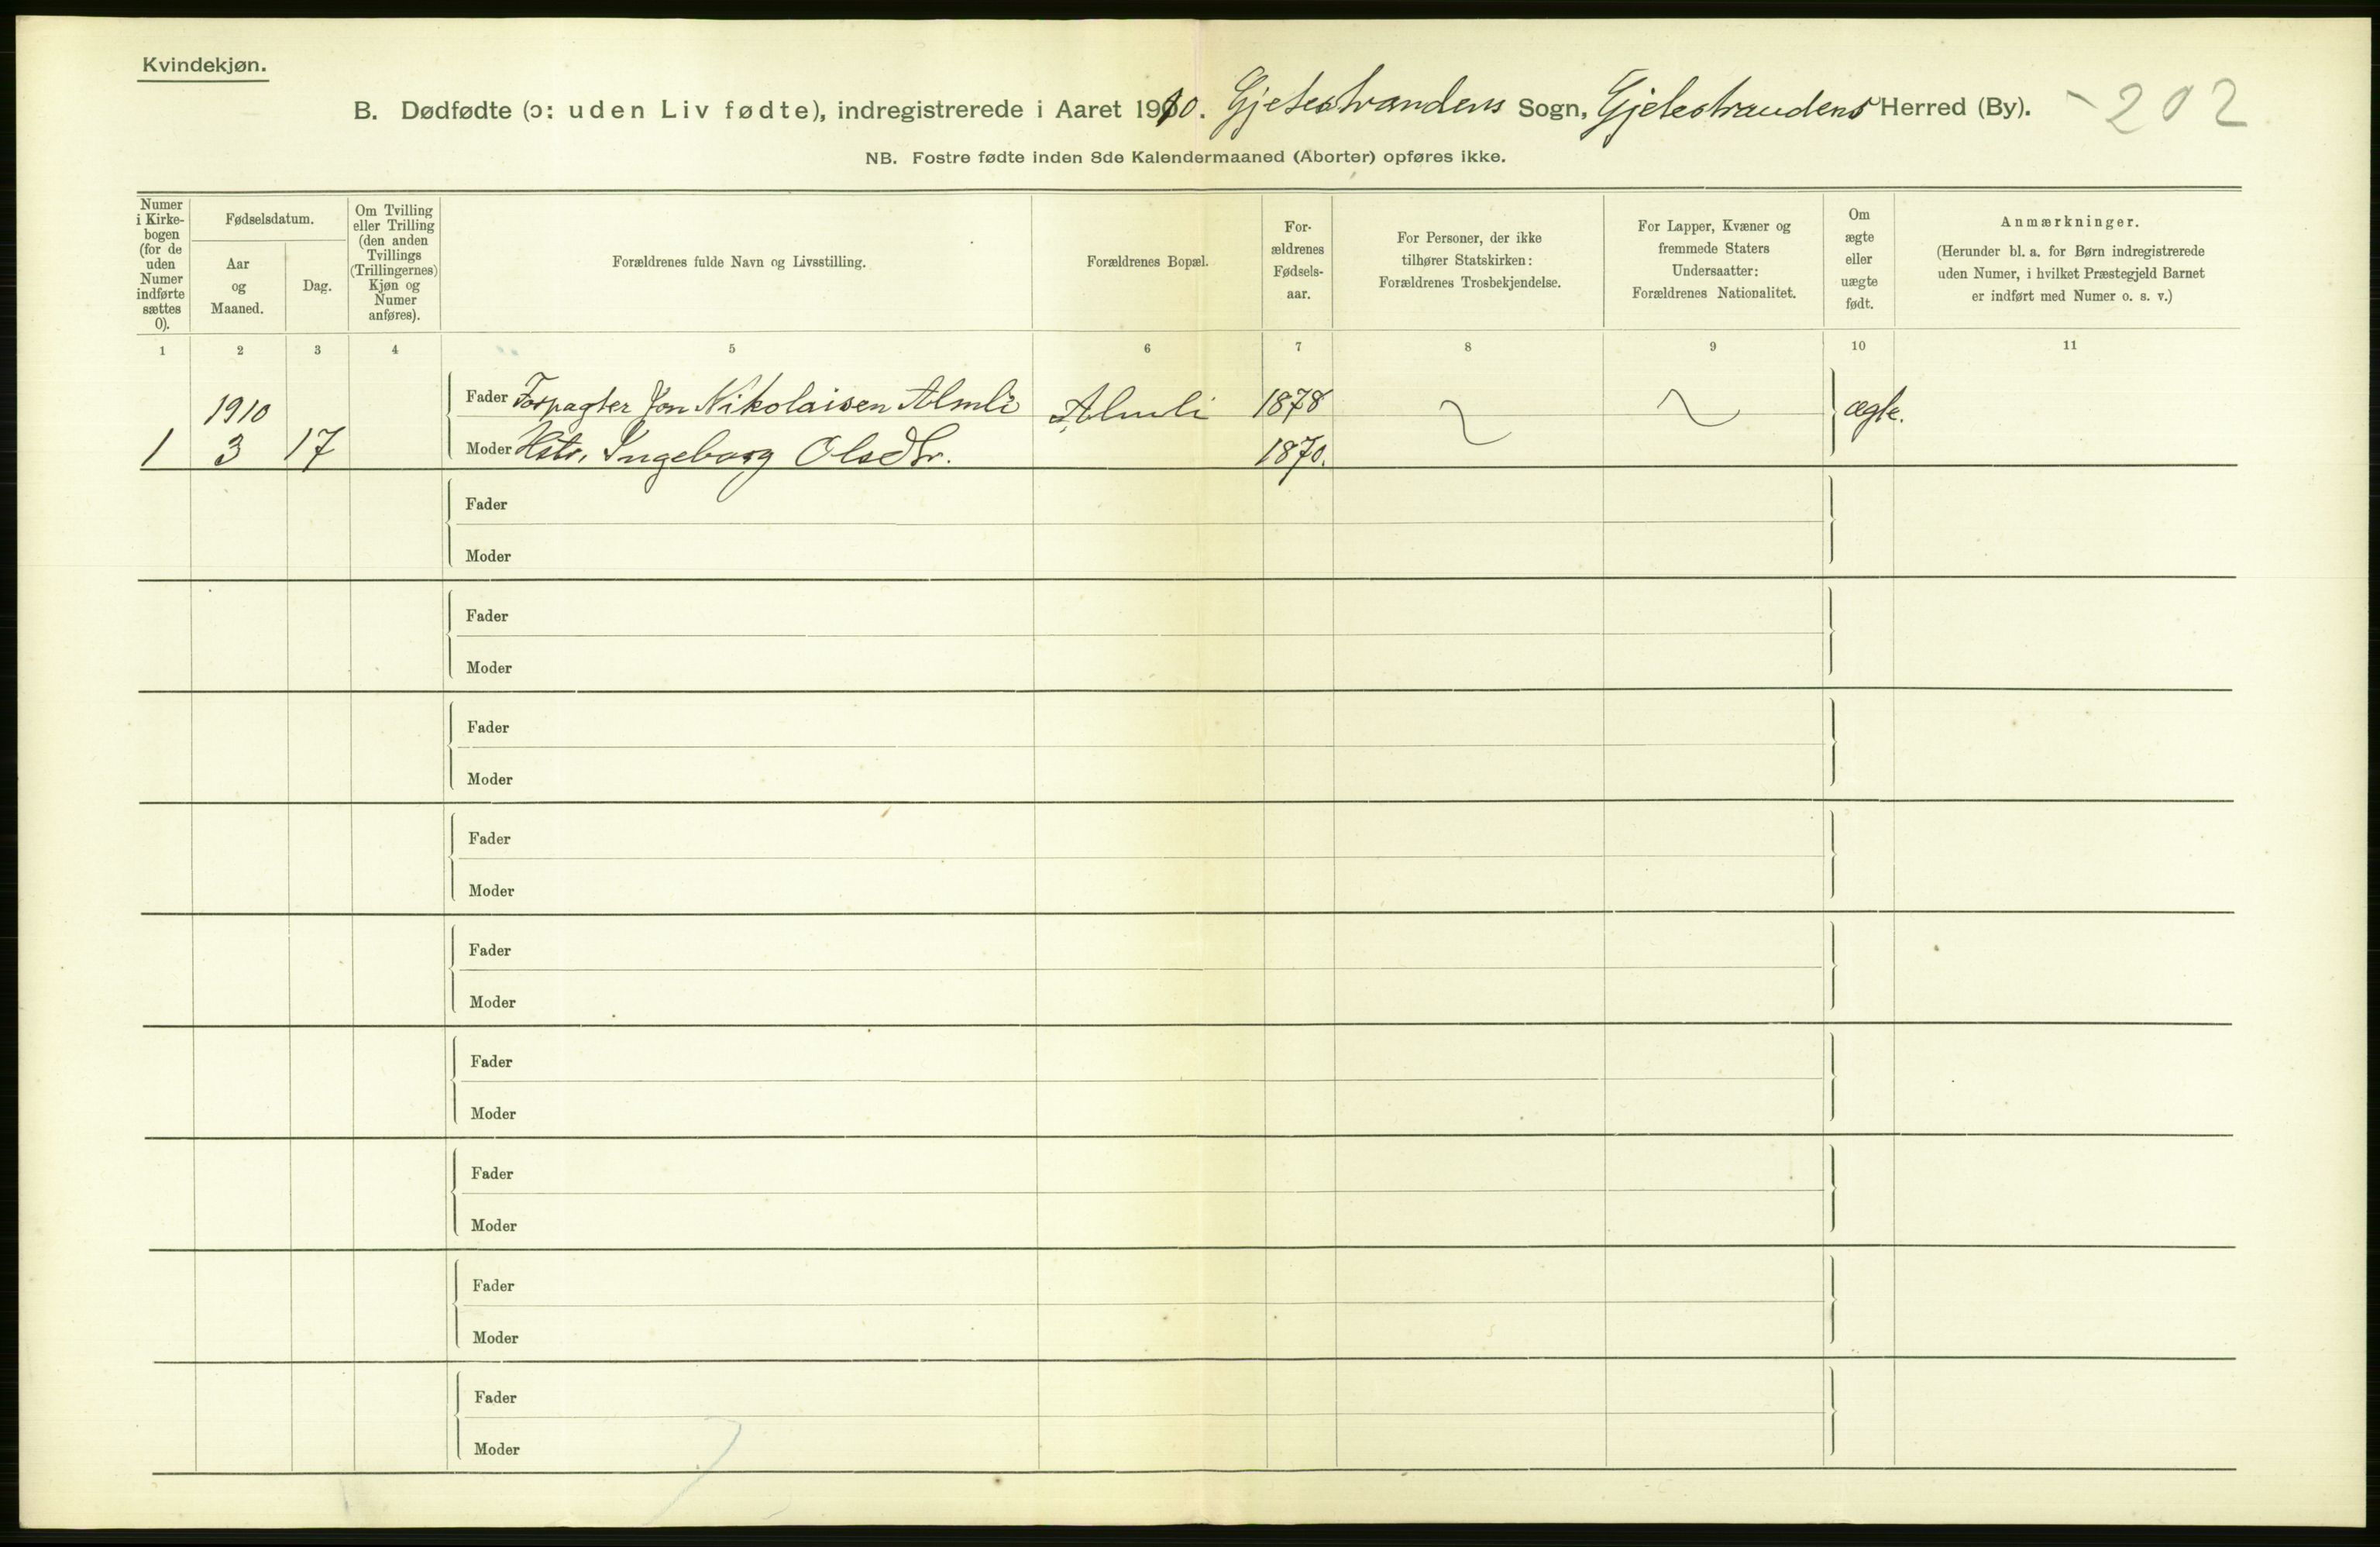 Kvindekjøn.
B. Dødfødte (ɔ: uden Liv fødte), indregistrerede i Aaret 1910. Gjetestrandens Sogn, Gjetestrandens Herred (By). - 202
NB. Fostre fødte inden 8de Kalendermaaned (Aborter) opføres ikke.
Numer i Kirkebogen (for de uden Numer indførte sættes 0).
Fødselsdatum.
Aar og Maaned.
Dag.
Om Tvilling eller Trilling (den anden Tvillings (Trillingernes) Kjøn og Numer anføres).
Forældrenes fulde Navn og Livsstilling.
Forældrenes Bopæl.
Forældrenes Fødselsaar.
For Personer, der ikke tilhører Statskirken: Forældrenes Trosbekjendelse.
For Lapper, Kvæner og fremmede Staters Undersaatter: Forældrenes Nationalitet.
Om ægte eller uægte født.
Anmærkninger.
(Herunder bl. a. for Børn indregistrerede uden Numer, i hvilket Præstegjeld Barnet er indført med Numer o. s. v.)
1 2 3 4 5 6 7 8 9 10 11
1910 Fader Forpagter Jon Nikolaisen Almli Almli 1878 ægte.
1 3 17 Moder Hstr. Ingeborg Olsdtr. 1870.
Fader
Moder
Fader
Moder
Fader
Moder
Fader
Moder
Fader
Moder
Fader
Moder
Fader
Moder
Fader
Moder
Fader
Moder